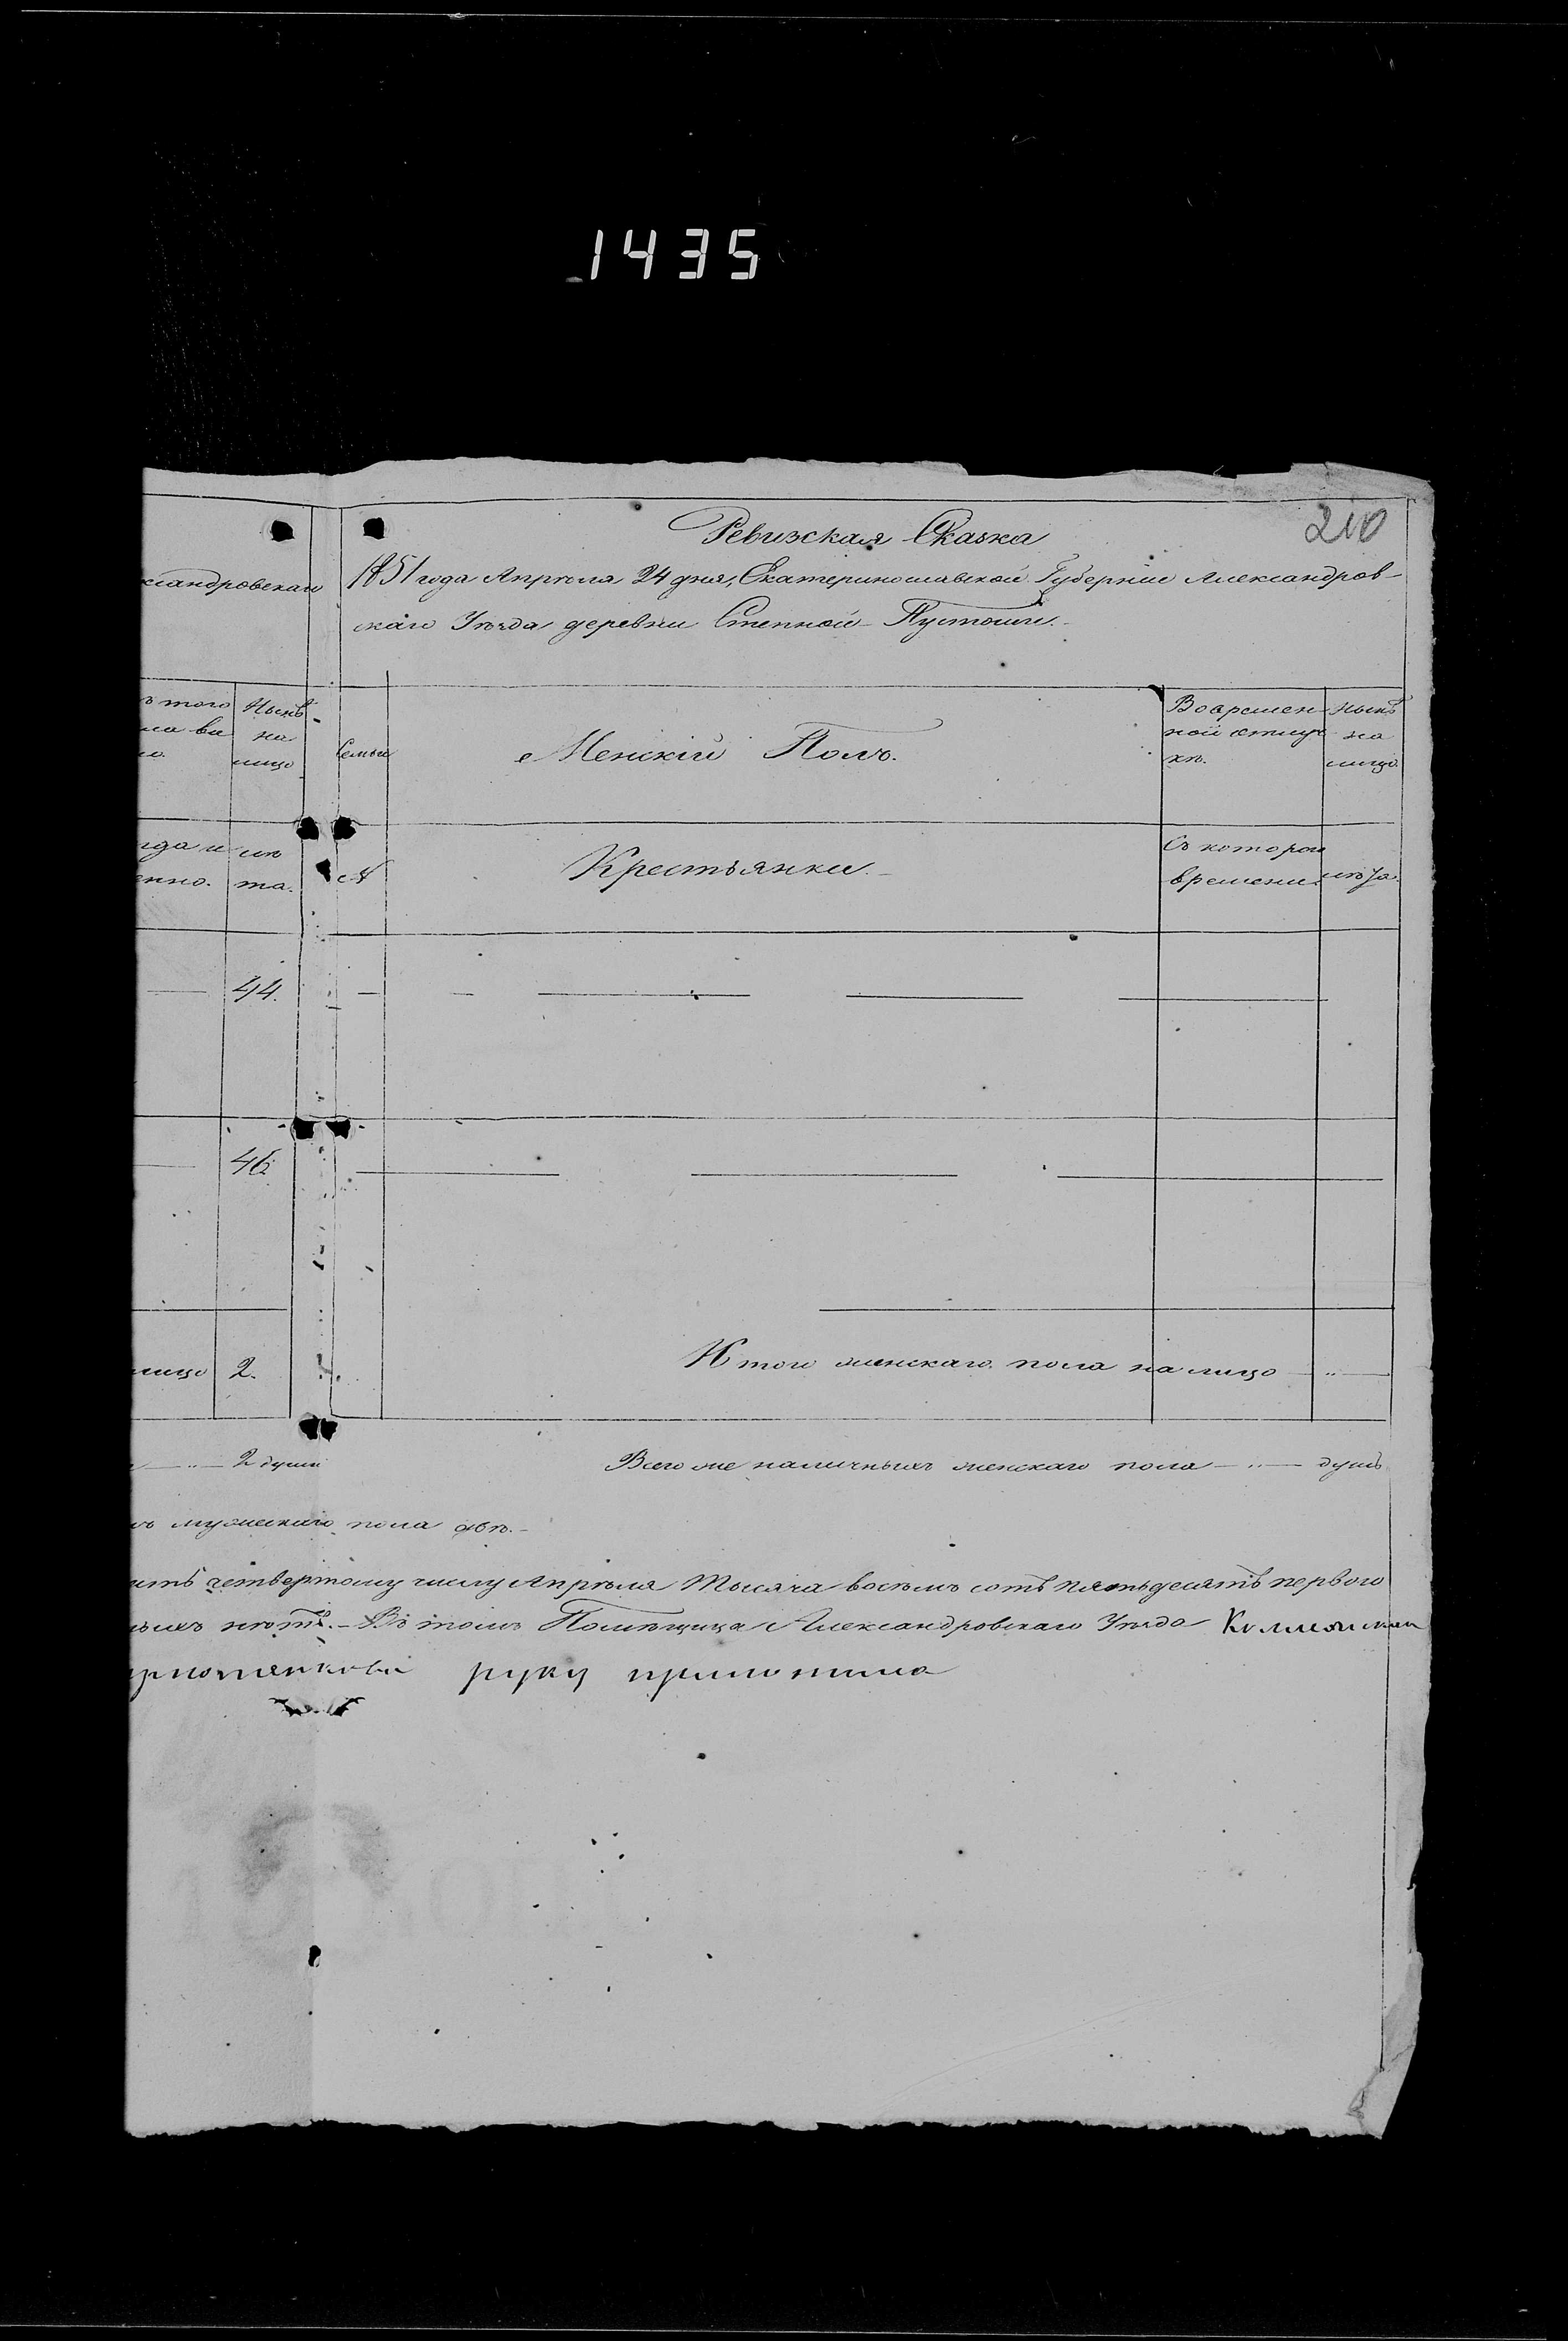 1435
210
Ревизская Сказка
1851 года Апрѣля 24 дня, Екатеринославской Губерніи Александров-
скаго Уѣзда деревни Степной Пустоши.
ксандровскаго
ъ того
Нынѣ
на
лицо
Семьи
Женскій Полъ.
Во времен-
ной отлуч-
кѣ.
нынѣ
на
лицо
лѣ
та.
№
Крестьянки.
Съ котораго
времени
лѣта.
енно.
44.
46
лицо 2.
Итого женскаго пола на лицо
2 души
Всего же наличныхъ женскаго пола — душъ
мужескаго пола двѣ.
ать четвертому числу Апрѣля Тысяча восемъ сотъ пятьдесятъ первого
нѣтъ. - Въ томъ Помѣщица Александровскаго Уѣзда
руку приложила